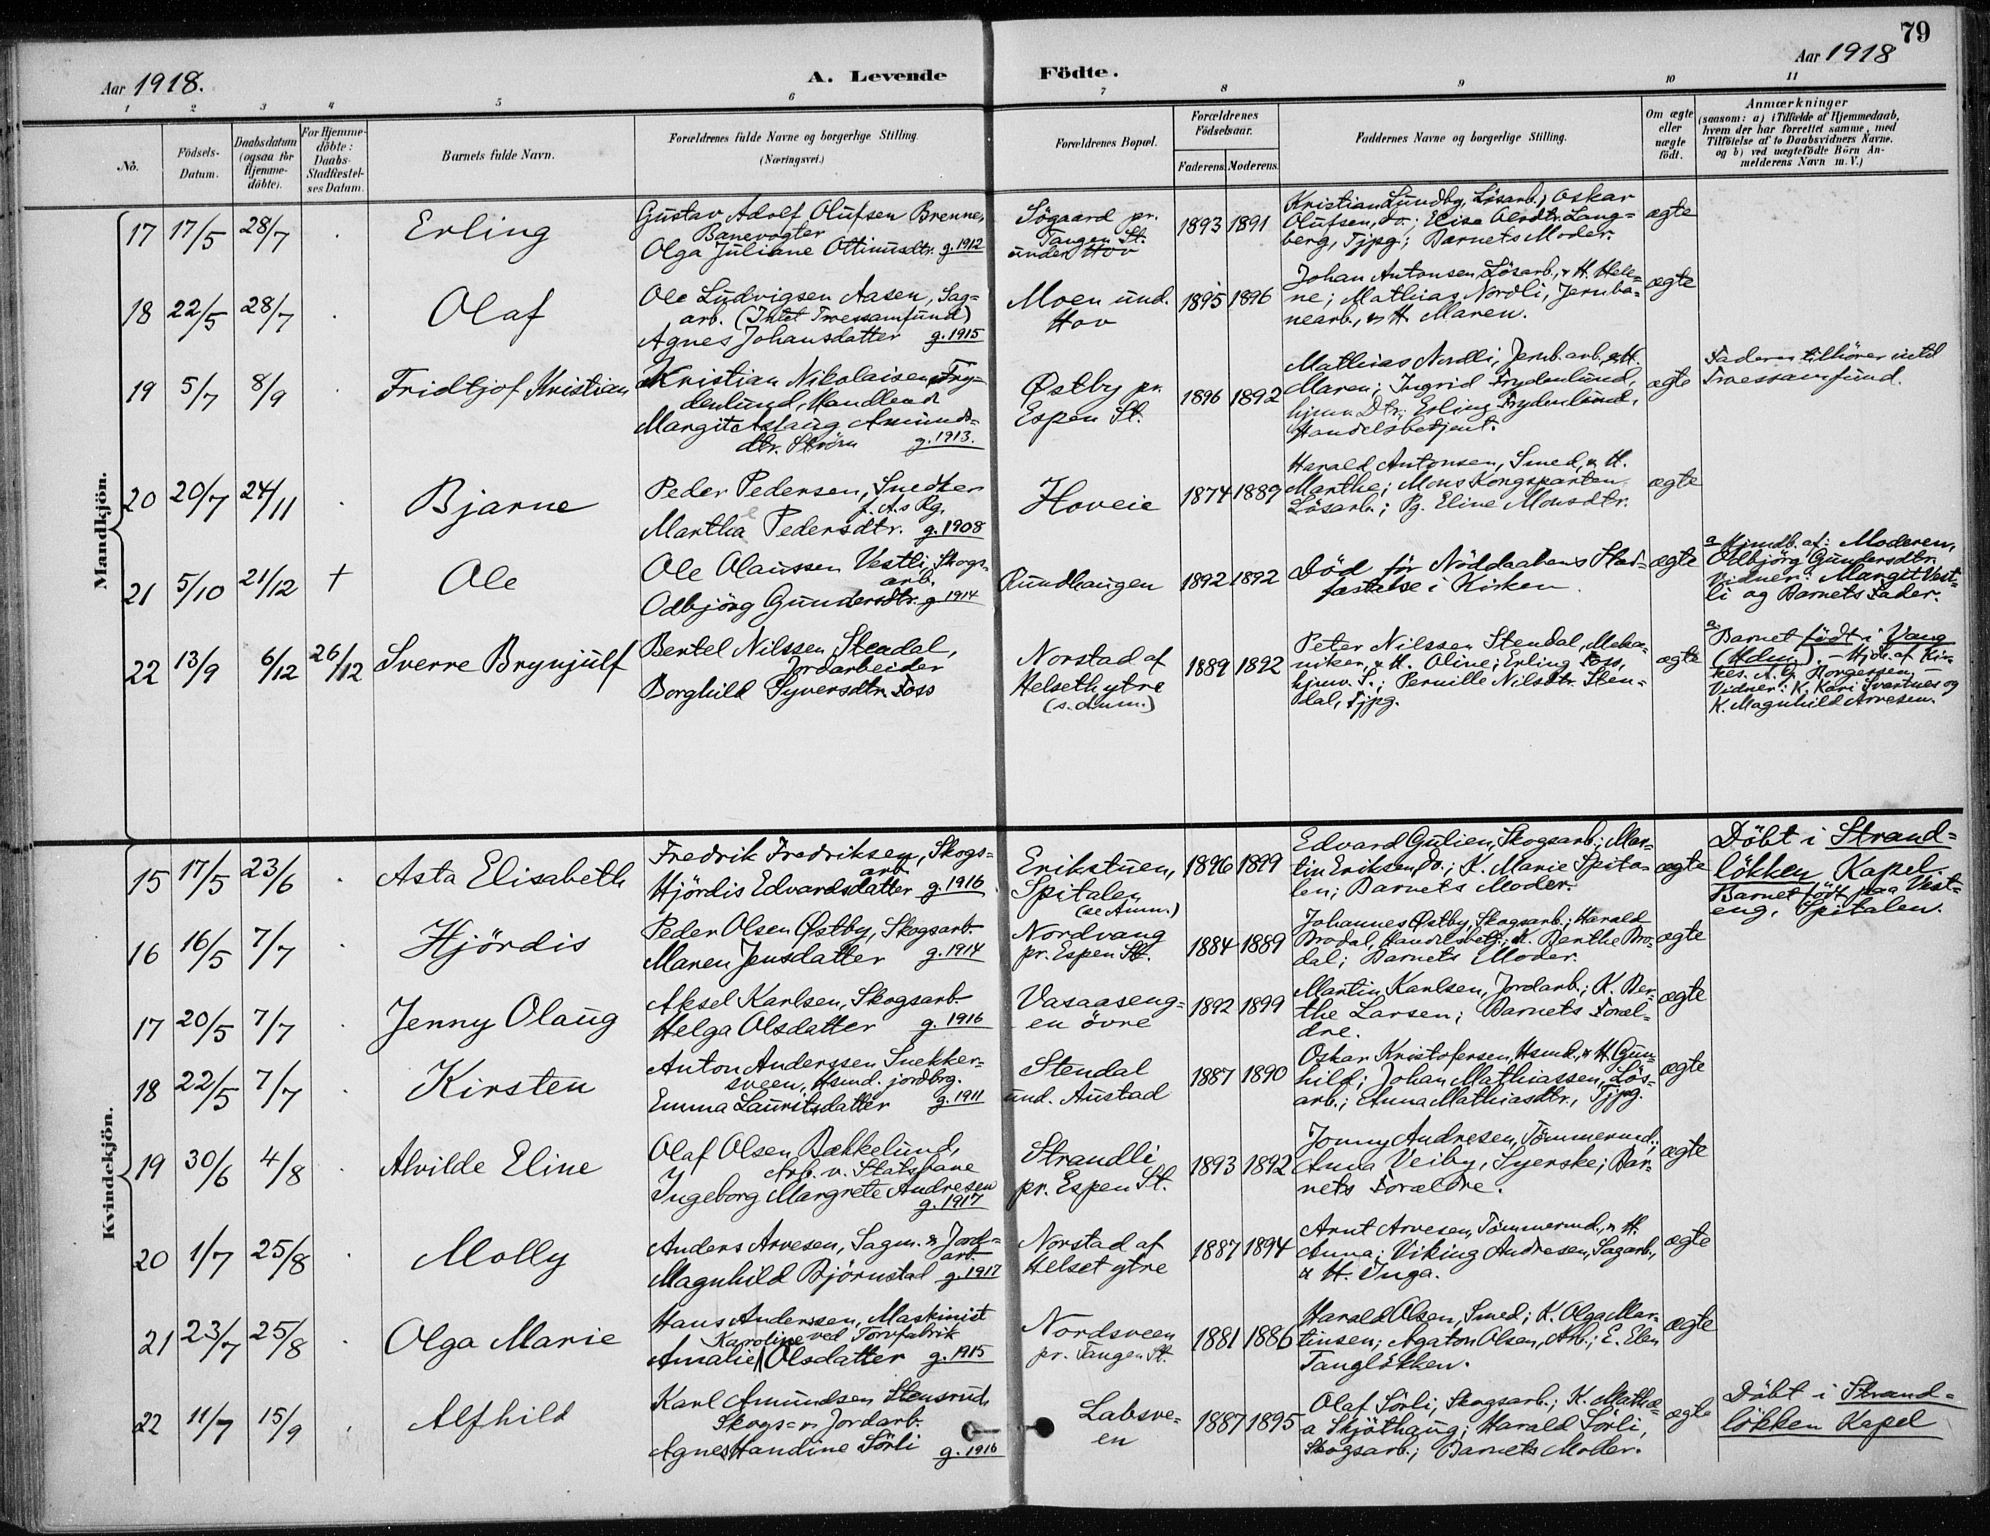 79
Aar 1918.
A. Levende Födte.
Aar 1918
1 2 3 4 5 6 7 8 9 10 11
No.
Födsels-
Datum.
Daabsdatum
(ogsaa for
Hjemme-
döbte).
For Hjemme-
döbte:
Daabs-
Stadfæstel-
ses Datum.
Barnets fulde Navn.
Forældrenes fulde Navne og borgerlige Stilling.
(Næringsvei.)
Forældrenes Bopæl.
Forældrenes
Födselsaar.
Faderens. Moderens.
Faddernes Navne og borgerlige Stilling.
Om ægte
eller
uægte
födt.
Anmærkninger
(saasom: a) i Tilfælde af Hjemmedaab,
hvem der har forrettet samme, med
Tilföielse af to Daabsvidners Navne.
og b) ved uægtefödte Börn An-
melderens Navn m. V.)
Mandkjön.
17 17/5 28/7 Erling
Gustav Adolf Olufsen Brennen
Banevogter
Olga Juliane Ottinusdtr. g. 1912
Søgaard pr.
Tangen St.
under Hov
1893 1891
Kristian Lundby, Lösarb.; Oskar
Olufsen, do.; Elise Olsdtr. Lang=
berg, Tjpg.; Barnets Moder.
ægte
18 22/5 28/7 Olaf
Ole Ludvigsen Aasen, Sag=
arb. (Intet Troessamfund)
Agnes Johansdatter g. 1915
Moen und.
Hov
1895 1896
Johan Antonsen, Lösarb., & H. Hele=
ne; Mathias Nordli, Jernba=
nearb., & H. Maren.
ægte
19 5/7 8/9 Fridtjof Kristian
Kristian Nikolaisen Fry=
denlund, Handlende
Margit Aslaug Amunds=
dtr. Ström g. 1913.
Østby pr.
Espen St.
1896 1892
Mathias Nordli, Jernb.arb. & H.
Maren; Ingrid Frydenlund,
hjmv. Dtr.; Erling Frydenlund,
Handelsbetjent.
ægte
Faderen tilhörer intet
Troessamfund.
20 20/7 24/11 Bjarne
Peder Pedersen, Snedker
Martha Pedersdtr. g. 1908
Hoveie
1874 1889
Harald Antonsen, Smed, & H.
Marthe; Mons Kongsparten,
Lösarb.; Pg. Eline Monsdtr.
ægte
21 5/10 21/12 + Ole
Ole Olaussen Vestli, Skogs=
arb.
Odbjörg Gundersdtr. g 1914
Rundhaugen
1892 1892
Död för Nöddaabens Stad=
fæstelse i Kirken.
ægte
a Hjmdb. af: Moderen,
Odbjörg Gundersdtr.
Vidner: Margit Vest=
li og Barnets Fader.
22 13/9 6/12 26/12 Sverre Brynjulf
Bertel Nilssen Stendal,
Jordarbeider
Borghild Syversdtr. Foss
Norstad af
Helseth ytre
(s. Anm.)
1889 1892
Peter Nilssen Stendal, Meka=
niker, & H. Oline; Erling Foss,
hjmv. S.; Pernille Nilsdtr. Sten=
dal, Tjpg.
ægte
a Barnet födt i Vang
(Hdm.). – Hjdb. af Kir=
kes. A. G. Borgersen
Vidner: K. Kari Svartnes og
K. Magnhild Arvesen.
Kvindekjön.
15 17/5 23/6 Asta Elisabeth
Fredrik Fredriksen, Skogs=
arb.
Hjördis Edvardsdatter g. 1916
Erikstuen,
Spitalen
(se Anm.)
1896 1899
Edvard Gulien, Skogsarb.; Mar=
tin Eriksen, Do.; K. Marie Spita=
len; Barnets Moder.
ægte
Döbt i Strand=
lökken Kapel.
Barnet födt paa Vest=
eng, Spitalen.
16 16/5 7/7 Hjördis
Peder Olsen Østby, Skogsarb.
Maren Jensdatter g. 1914
Nordvang
pr. Espen St.
1884 1889
Johannes Østby, Skogsarb.; Harald
Brodal, Handelsbetj.; K. Berthe Bro=
dal; Barnets Moder.
ægte
17 20/5 7/7 Jenny Olaug
Aksel Karlsen, Skogsarb.
Helga Olsdatter g. 1916
Vasaaseng=
en övre
1892 1899
Martin Karlsen, Jordarb.; K. Ber=
the Larsen; Barnets Foræl=
dre.
ægte
18 22/5 7/7 Kirsten
Anton Anderssen Snekker=
sveen, Hsmd. jordbrg.
Emma Lauritsdatter g. 1911
Stendal
und. Austad
1887 1890
Oskar Kristofersen, Hsmd., & H. Gun=
hild; Johan Mathiassen, Lös=
arb.; Anna Mathiasdtr., Tjpg.
ægte
19 30/6 4/8 Alvilde Eline
Olaf Olsen Bækkelund,
Arb. v. Statsbane
Ingeborg Margrete Andresen
g. 1917
Strandli
pr. Espen St.
1893 1892
Jonny Andresen, Tömmermd.;
Anna Veiby, Syerske; Bar=
nets Forældre.
ægte
20 1/7 25/8 Molly
Anders Arvesen, Sagm. & Jord=
arb.
Magnhild Björnstad g. 1917
Norstad af
Helset ytre
1887 1894
Arnt Arvesen, Tömmermd., & H.
Anna; Viking Andresen, Sagarb.,
& H. Inga.
ægte
21 23/7 25/8 Olga Marie
Hans Anderssen, Maskinist
Karoline ved Torvfabrik
Amalie Olsdatter g. 1915
Nordsveen
pr. Tangen St.
1881 1886
Harald Olsen, Smed; K. Olga Mar=
tinsen; Agaton Olsen, Arb.; E. Elen
Tanglökken.
ægte
22 11/7 15/9 Alfhild
Karl Amundsen Stensrud,
Skogs= & Jordarb.
Agnes Handine Sörli g. 1916
Labsve=
en
1887 1895
Olaf Sörli, Skogsarb.; K. Mathe=
a Skjöthaug; Harald Sörli,
Skogsarb.; Barnets Moder.
ægte
Döbt i Strand=
lökken Kapel